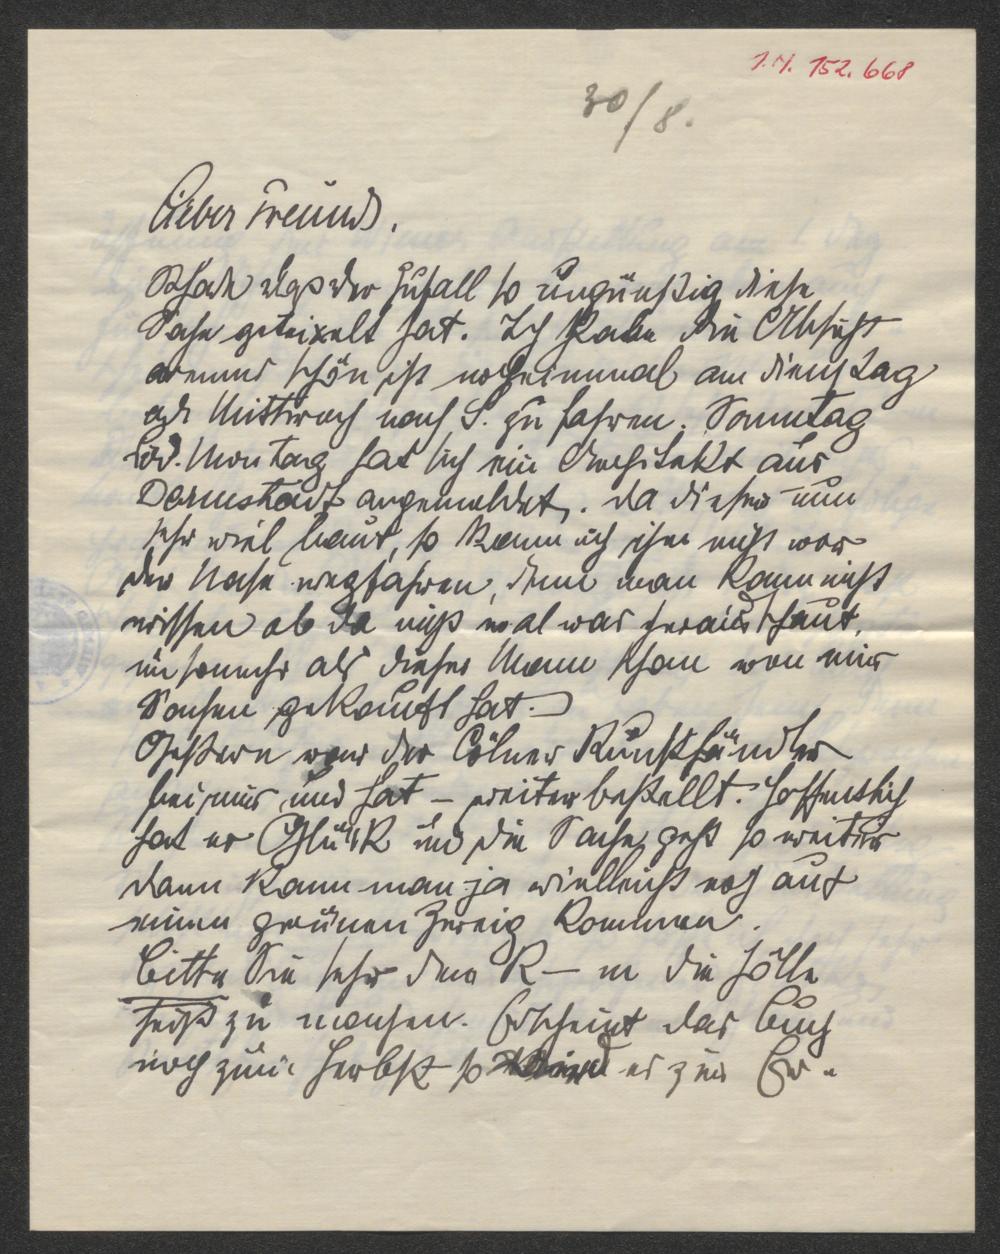 I.N. 152.668
30/8.
Lieber Freund.
Schade daß der Zufall so ungünstig diese
Sache gedeixelt hat. Ich habe die Absicht
wenns schön ist nocheinmal am Dienstag
odr Mittwoch nach S. zu fahren. Sonntag
od. Montag hat sich ein Architekt aus
Darmstadt angemeldet. Da dieser nun
sehr viel baut, so kann ich ihm nicht vor
der Nase wegfahren, denn man kann nicht
wissen ob da nicht mal was herausschaut,
umsomehr als dieser Mann schon von mir
Sachen gekauft hat.
Gestern war der Cölner Kunsthändler
bei mir und hat – weiter bestellt. Hoffentlich
hat er Glück und die Sache geht so weiter
dann kann man ja vielleicht noch auf
einen grünen Zweig kommen.
Bitte Sie sehr dem R– in die Hölle
heiß zu machen. Erscheint das Buch
noch zum Herbst so wird es zur Er-